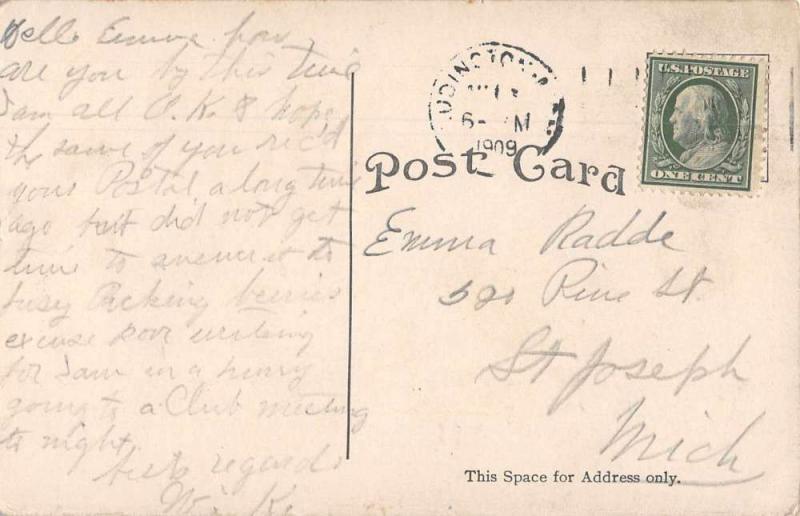 Hello Emma how
are you by this time
I am all O.K. & hope
the same of you rec'd
your Postal a long time
ago but did not get
time to answer it to
busy Picking berries
excuse poor writing
for I am in a hurry
going to a Club meeting
to night.
best regards
W. K.
UDINGTON
6- M
1909
U.S. POSTAGE
ONE CENT
Post Card
Emma Radde
520 Pine St.
St Joseph
Mich
This Space for Address only.